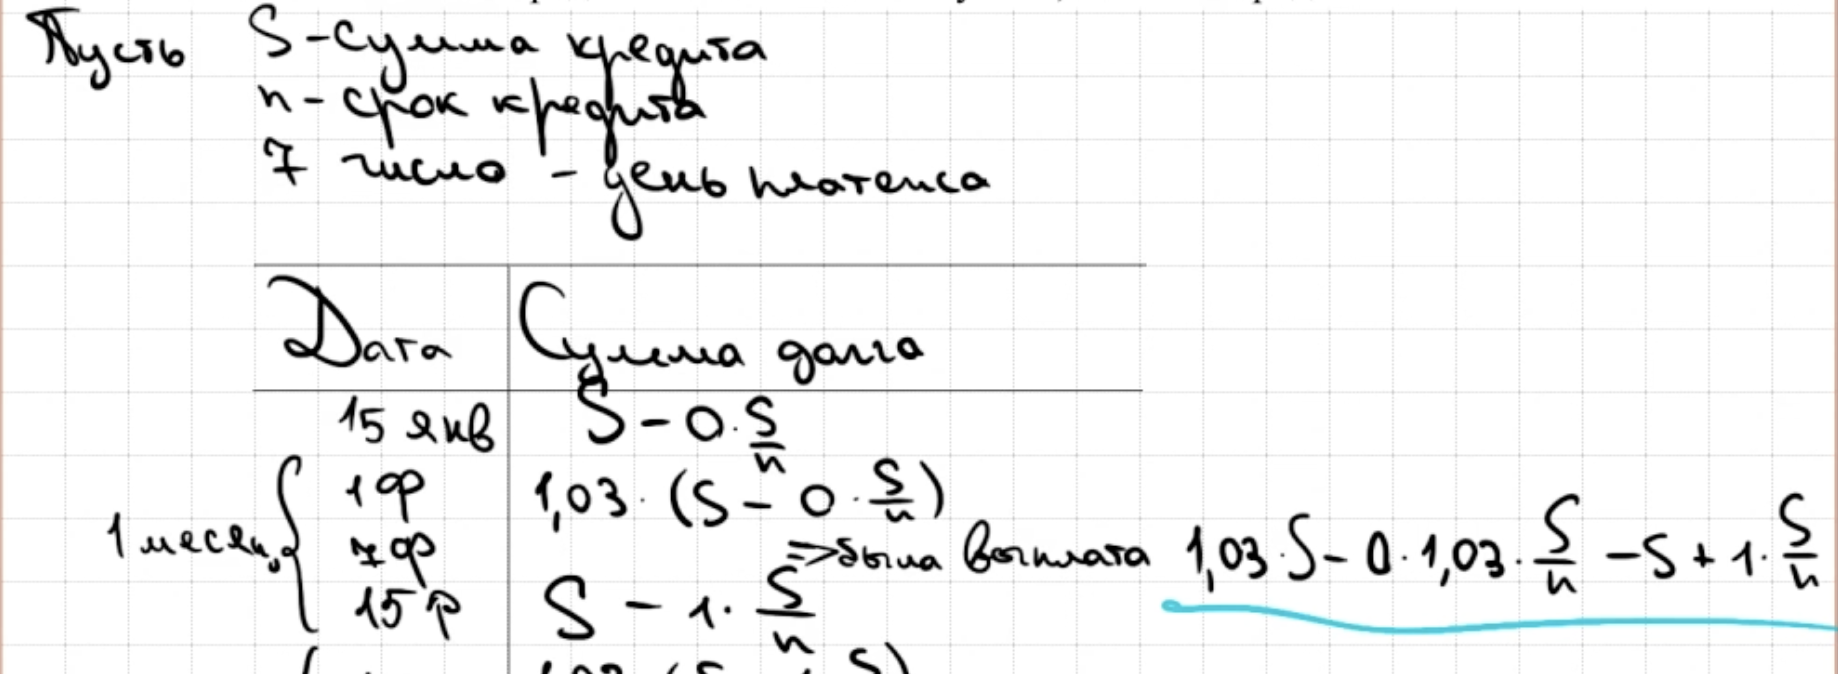 Пусть S - сумма кредита
n - срок кредита
7 число - день платежа
Дата Сумма долга
15 янв S - 0 · S/n
1 ф 1,03 · (S - 0 · S/n)
1 месяц 7 ф => была выплата 1,03 · S - 0 · 1,03 · S/n - S + 1 · S/n
15 ф S - 1 · S/n